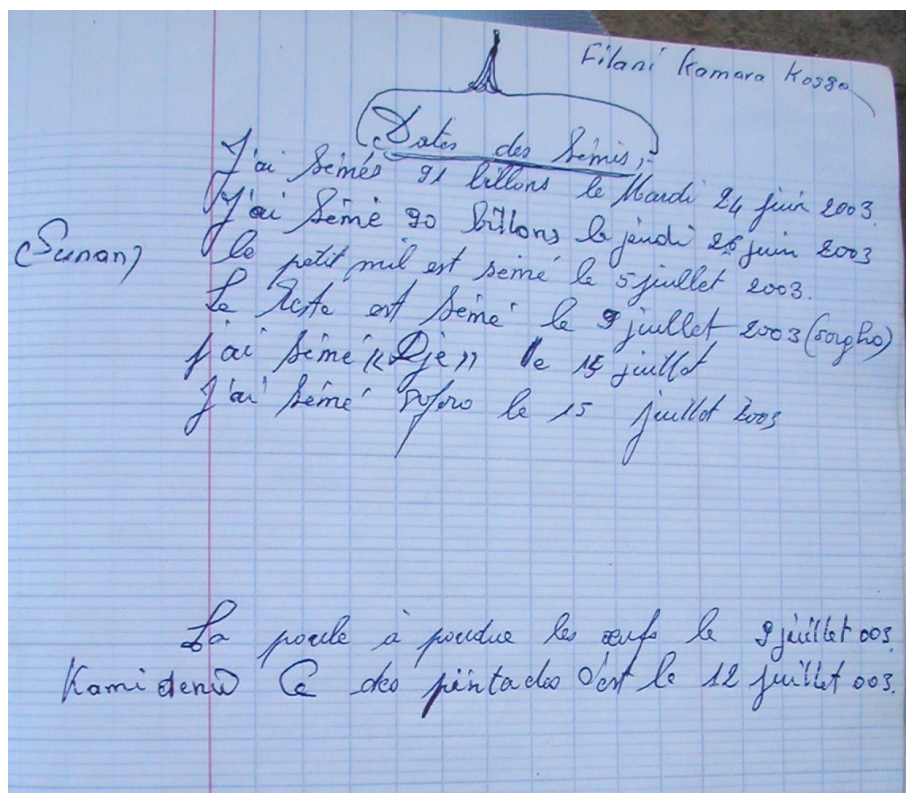 Filani Kamara Kosso
Dates des Semis,-
J'ai Sémés 91 billons le Mardi 24 juin 2003.
J'ai Sémé 90 billons le jeudi 26 juin 2003
(Sunan) le petit mil est semé le 5 juillet 2003.
Le Reste est Sémé le 9 juillet 2003 (sorgho)
j'ai Sémé «Dje» le 15 juillet
J'ai Sémé le 15 juillet 2003
La poule à pondue les œufs le 9 juillet 003.
Kami denu Ce des pintades c'est le 12 juillet 003.